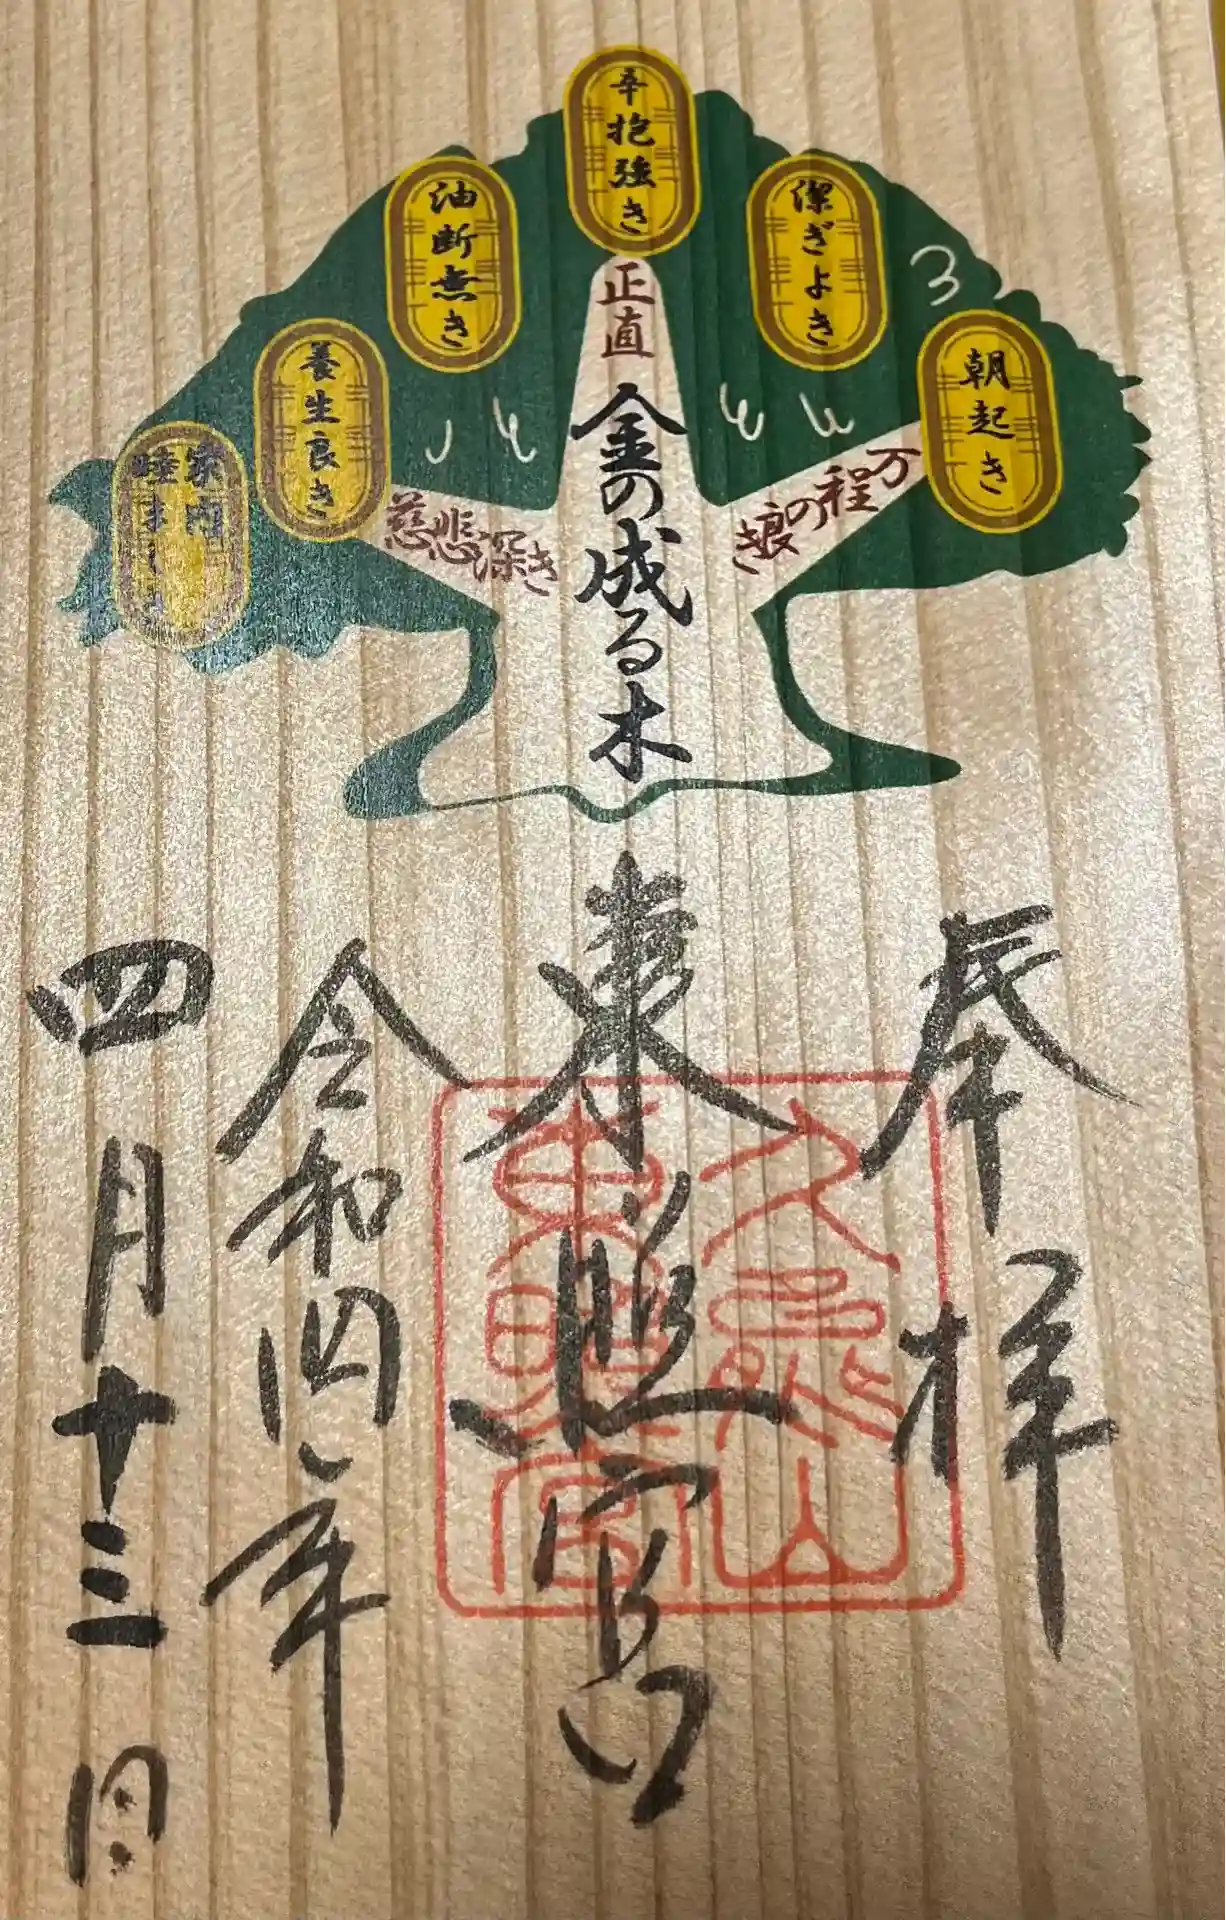 朝起き
潔ぎよき
辛抱強き
油断無き
養生良き
家内
睦まじき
万程の良き
正直
慈悲深き
金の成る木
奉拝
東照宮
久能山
東照宮
令和四年
四月十三日